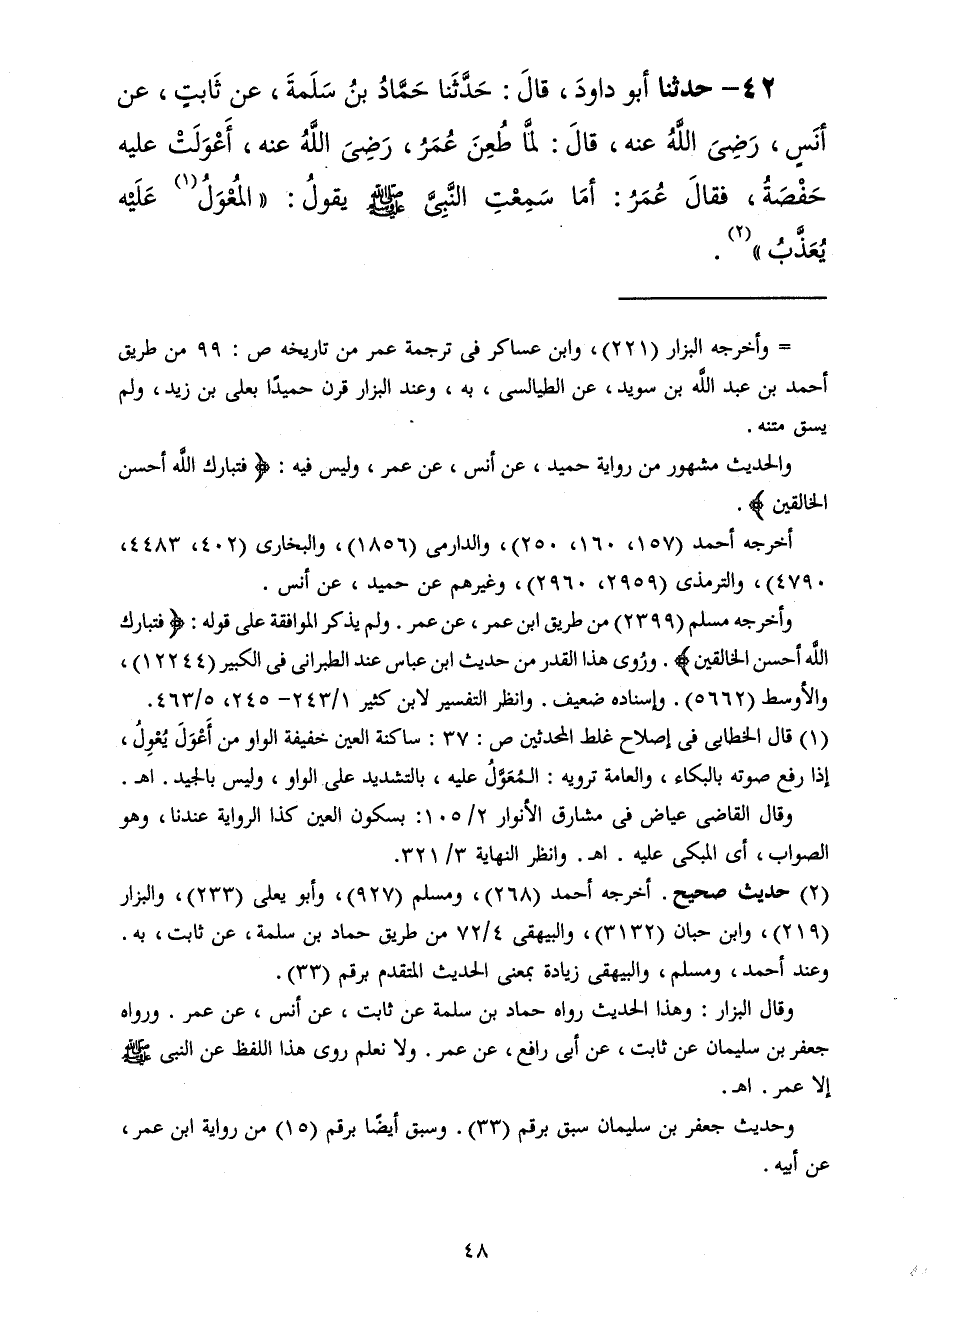 ٤٢- حدثنا أبو داودَ ، قالَ : حَدَّثَنا حَمَّادُ بنُ سَلَمةَ ، عن ثَابتٍ ، عن
أنَسٍ ، رَضِىَ اللَّهُ عنه ، قالَ : لمَّا طُعِنَ عُمَرُ ، رَضِىَ اللَّهُ عنه ، أَعْوَلَتْ عليه
حَفْصَةُ ، فقالَ عُمَرُ : أمَا سَمِعْتِ النَّبِىَّ ﷺ يقولُ : « المُعْوَلُ(١) عَلَيْه
يُعَذَّبُ »(٢) .
= وأخرجه البزار (٢٢١)، وابن عساكر فى ترجمة عمر من تاريخه ص : ٩٩ من طريق
أحمد بن عبد اللَّه بن سويد ، عن الطيالسى ، به ، وعند البزار قرن حميدًا بعلى بن زيد ، ولم
يسق متنه .
والحديث مشهور من رواية حميد ، عن أنس ، عن عمر ، وليس فيه : ﴿ فتبارك اللَّه أحسن
الخالقين ﴾ .
أخرجه أحمد (١٥٧، ١٦٠، ٢٥٠)، والدارمى (١٨٥٦)، والبخارى (٤٠٢، ٤٤٨٣،
٤٧٩٠)، والترمذى (٢٩٥٩، ٢٩٦٠)، وغيرهم عن حميد ، عن أنس .
وأخرجه مسلم (٢٣٩٩) من طريق ابن عمر ، عن عمر . ولم يذكر الموافقة على قوله : ﴿ فتبارك
اللَّه أحسن الخالقين ﴾ . ورُوى هذا القدر من حديث ابن عباس عند الطبرانى فى الكبير (١٢٢٤٤) ،
والأوسط (٥٦٦٢) . وإسناده ضعيف . وانظر التفسير لابن كثير ٢٤٣/١- ٢٤٥، ٤٦٣/٥.
(١) قال الخطابى فى إصلاح غلط المحدثين ص : ٣٧ : ساكنة العين خفيفة الواو من أَعْوَلَ يُعْوِلُ ،
إذا رفع صوته بالبكاء ، والعامة ترويه : المُعَوَّلُ عليه ، بالتشديد على الواو ، وليس بالجيد . اهـ .
وقال القاضى عياض فى مشارق الأنوار ١٠٥/٢: بسكون العين كذا الرواية عندنا ، وهو
الصواب ، أى المبكى عليه . اهـ . وانظر النهاية ٣٢١/٣.
(٢) حديث صحيح . أخرجه أحمد (٢٦٨) ، ومسلم (٩٢٧) ، وأبو يعلى (٢٣٣) ، والبزار
(٢١٩)، وابن حبان (٣١٣٢)، والبيهقى ٧٢/٤ من طريق حماد بن سلمة ، عن ثابت ، به .
وعند أحمد ، ومسلم ، والبيهقى زيادة بمعنى الحديث المتقدم برقم (٣٣) .
وقال البزار : وهذا الحديث رواه حماد بن سلمة عن ثابت ، عن أنس ، عن عمر . ورواه
جعفر بن سليمان عن ثابت ، عن أبى رافع ، عن عمر . ولا نعلم روى هذا اللفظ عن النبى ﷺ
إلا عمر . اهـ .
وحديث جعفر بن سليمان سبق برقم (٣٣) . وسبق أيضًا برقم (١٥) من رواية ابن عمر ،
عن أبيه .
٤٨